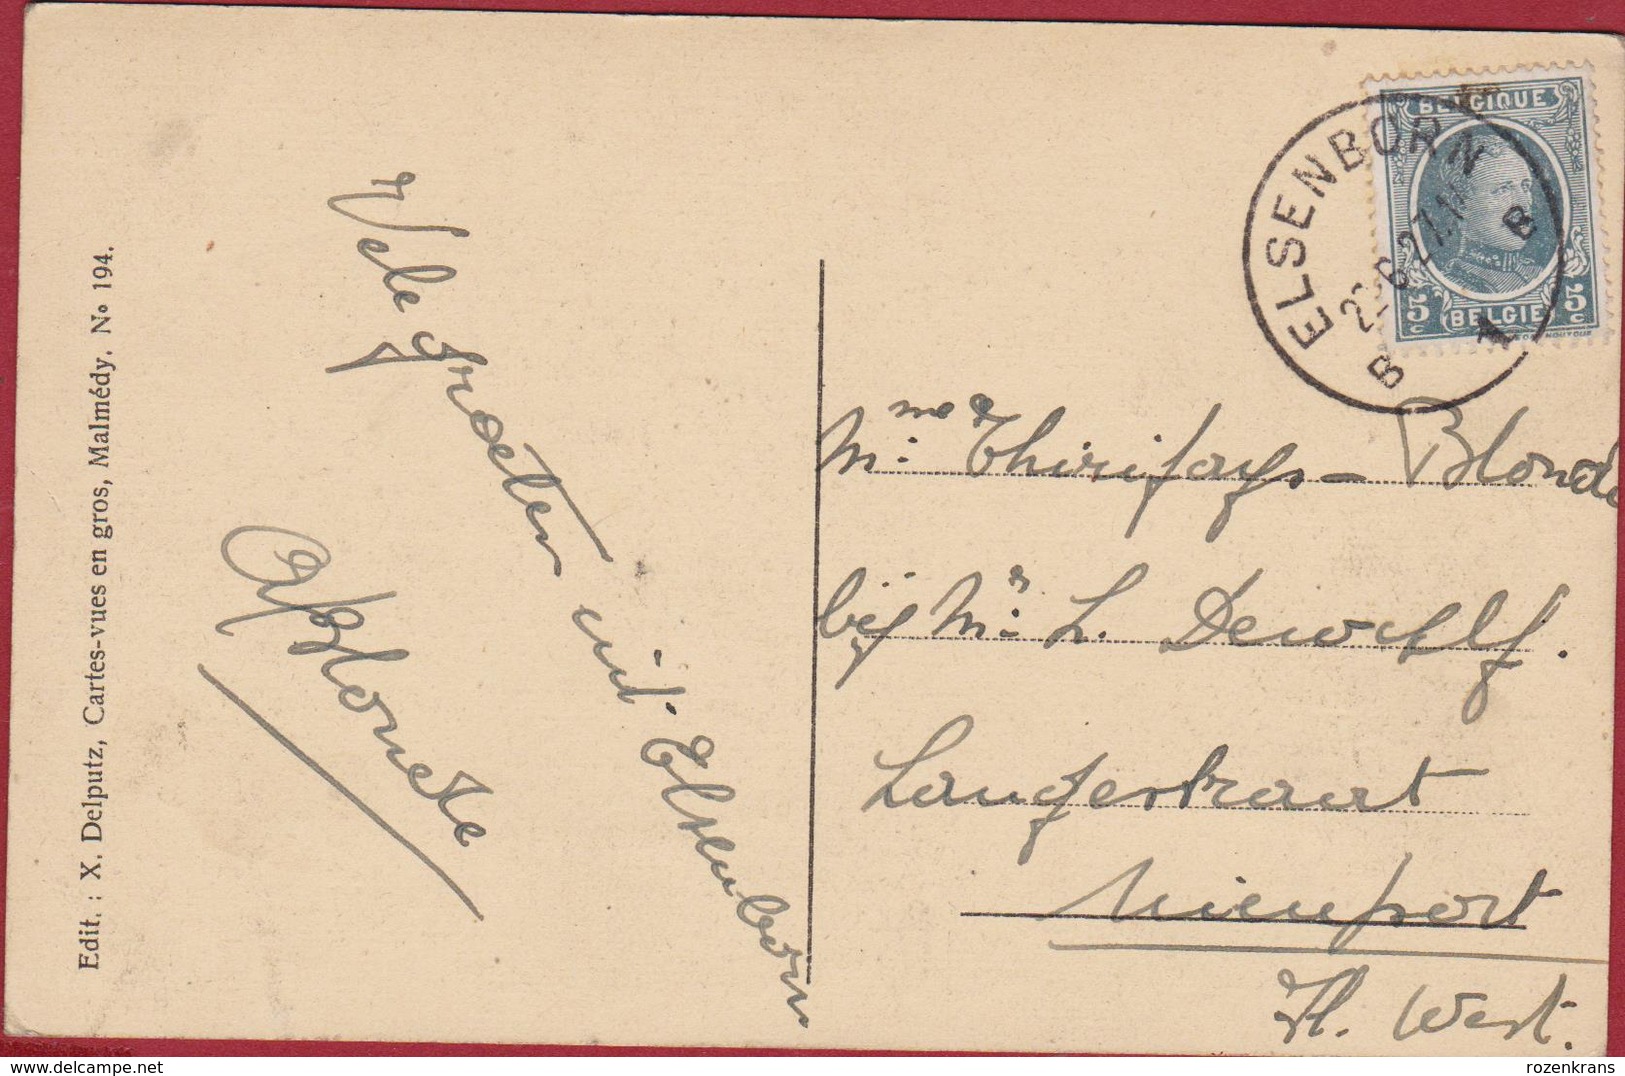 Edit. : X. Delputz, Cartes-vues en gros, Malmédy. No 194.
Vele groeten uit Elsenborn
ABlonde
BELGIQUE
5c 5c
BELGIE
ELSENBORN
B 1 B
6 27
Mme Thirifays - Blonde
bij Mr L. Dewulf.
Langestraat
Nieuport
Fl. West.
rozenkrans